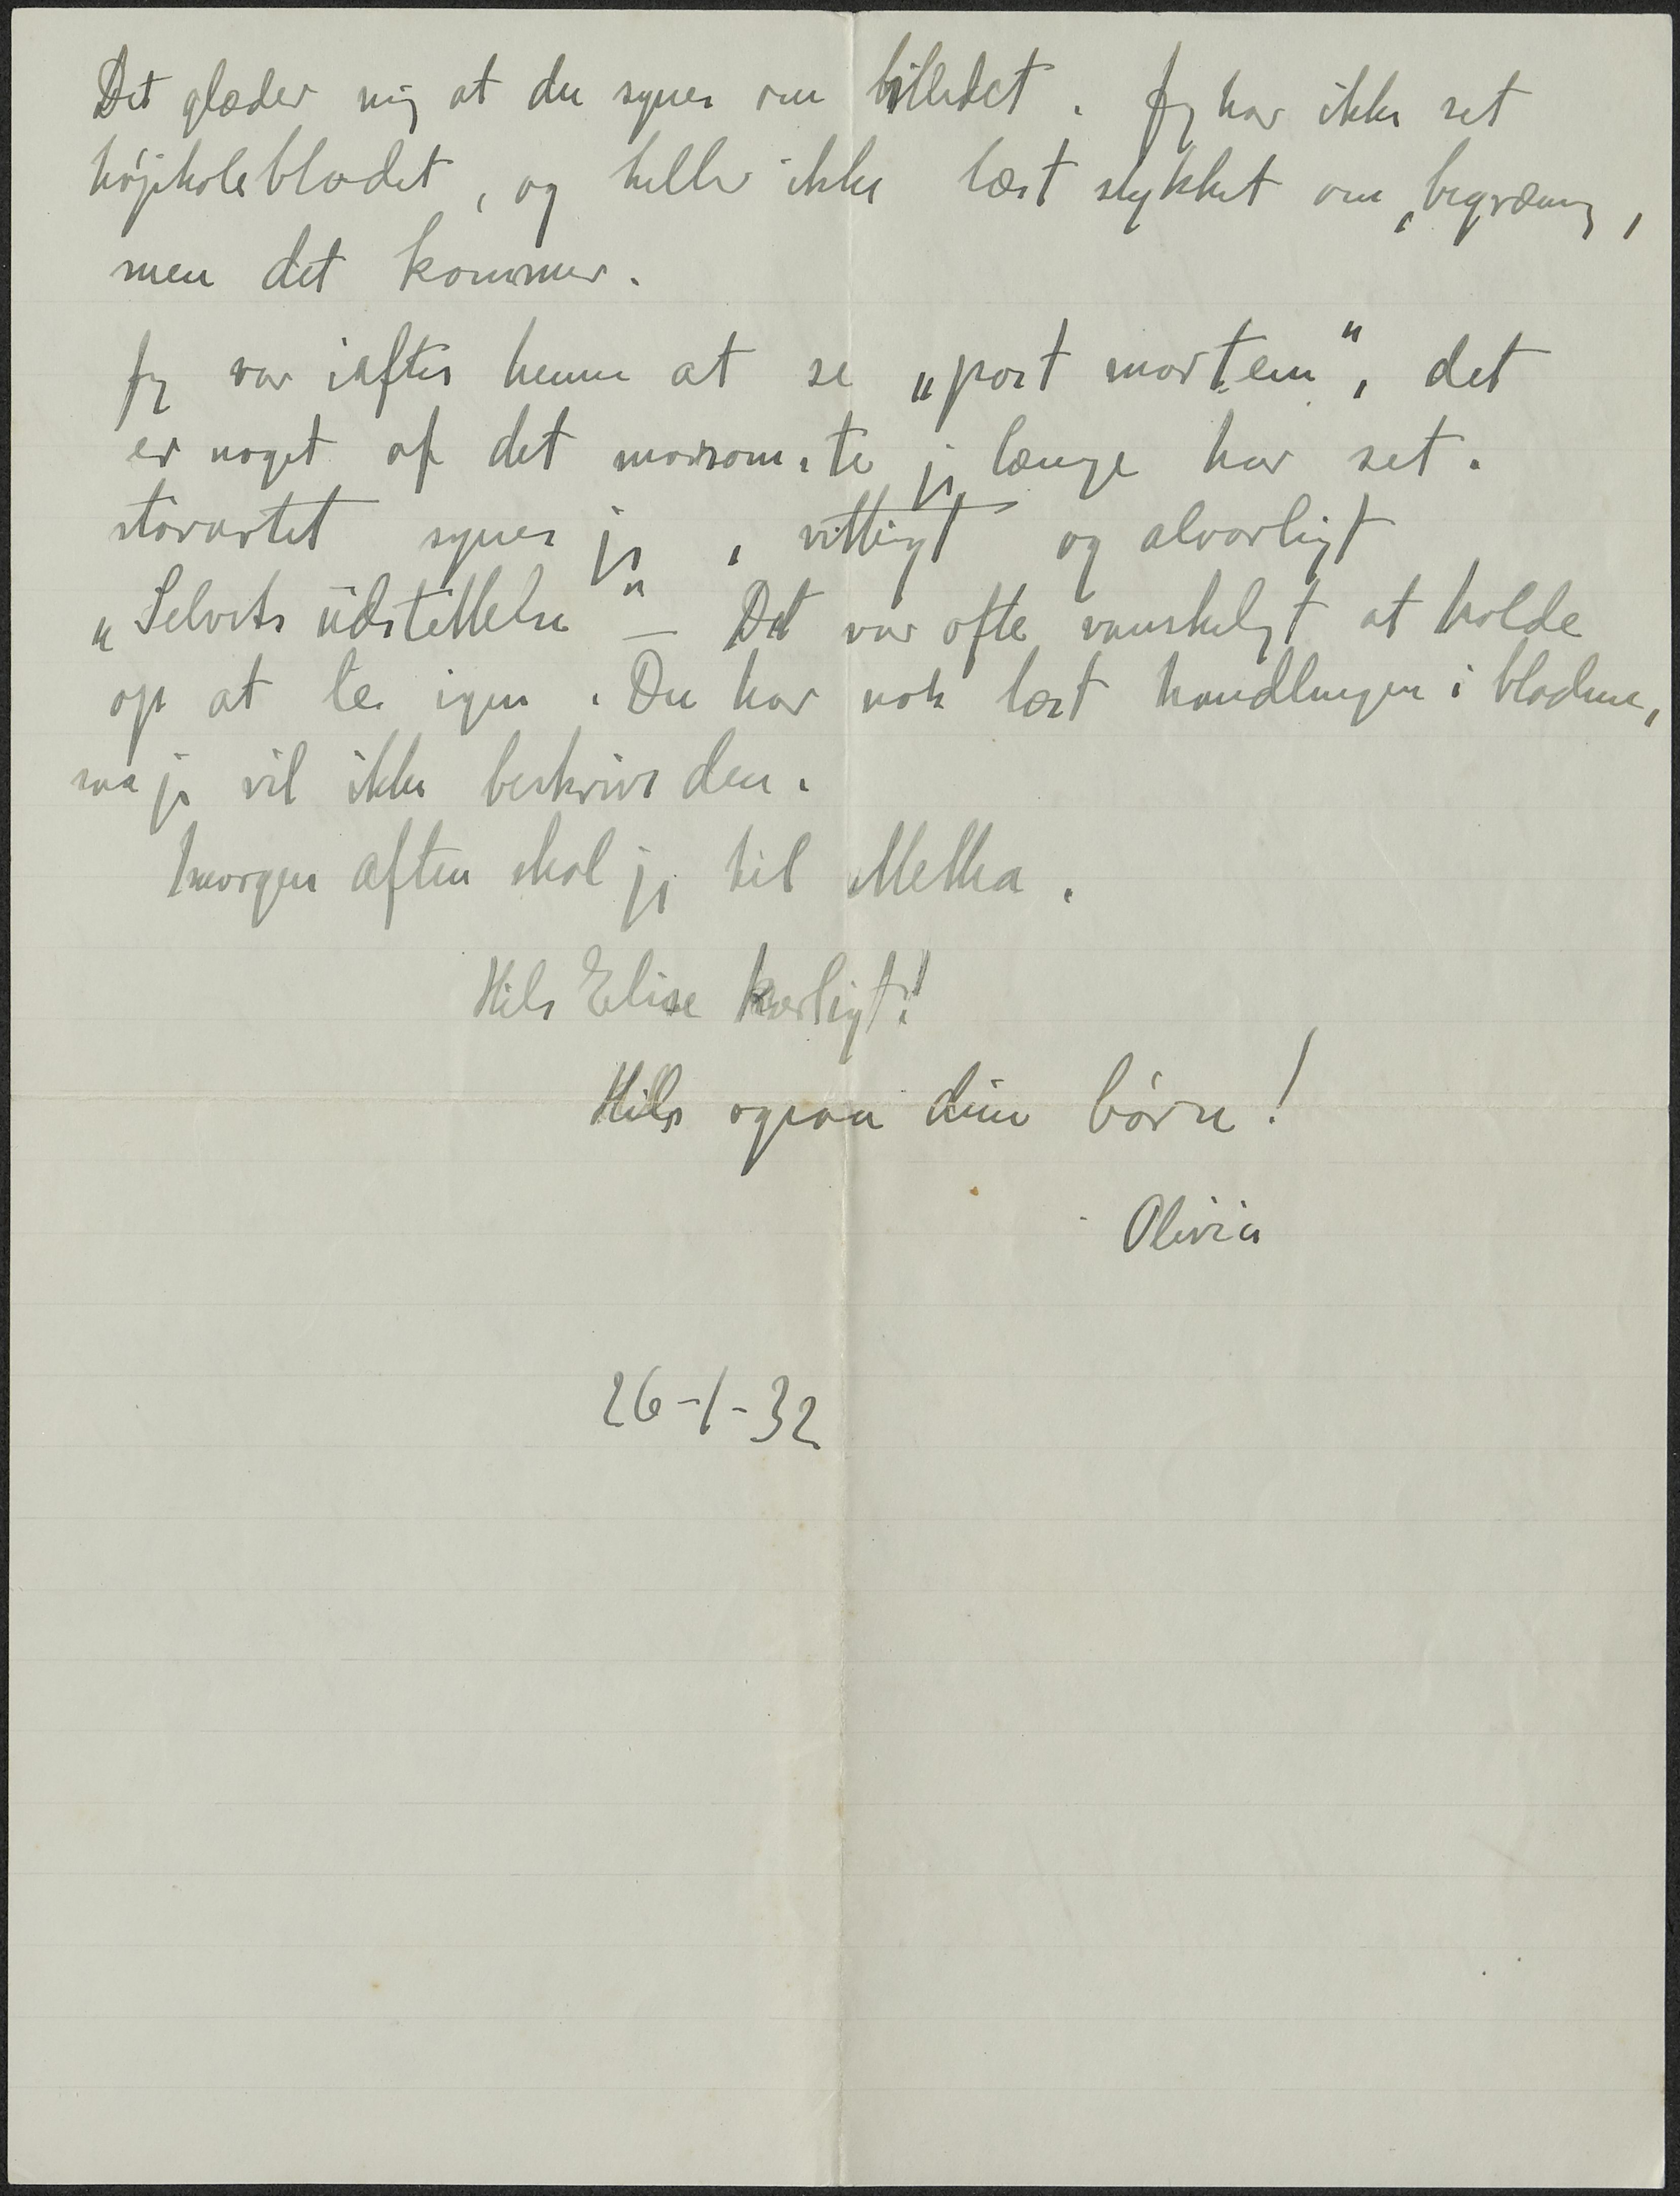 Det glæder mig at du synes om billedet. Jeg har ikke set
højskolebladet, og heller ikke læst stykket om begræns,
men det kommer.
Jeg var iaftes henne at se „post mortem“, det
er noget af det morsomste jeg længe har set.
storartet synes jeg, vittigt og alvorligt
„Selvets üdstillelse“ – Det var ofte vanskeligt at holde
op at le igen. Du har nok læst handlingen i bladene,
saa jeg vil ikke beskrive den.
Imorgen aften skal jeg til Melka.
Hils Elise kærligt!
Hils ogsaa dine børn!
Olivia
26-1-32